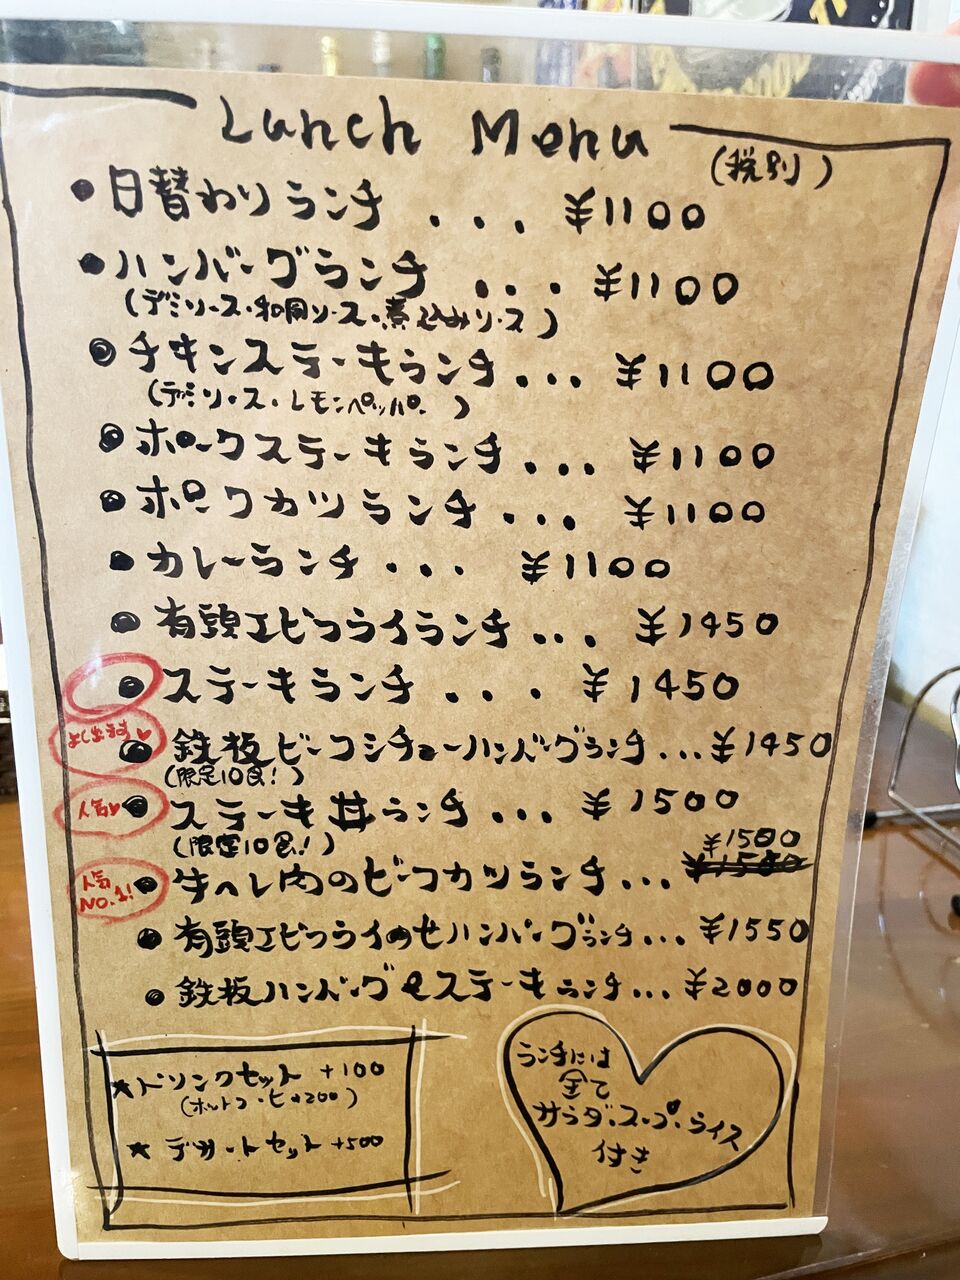 Lunch Menu
(税別)
・日替わりランチ ... ¥1100
・ハンバーグランチ ... ¥1100
(デミソース・和風ソース・煮込みソース)
・チキンステーキランチ... ¥1100
(デミソース・レモンペッパー)
・ポークステーキランチ... ¥1100
・ポークカツランチ... ¥1100
・カレーランチ ... ¥1100
・有頭エビフライランチ... ¥1450
・ステーキランチ ... ¥1450
よく出ます♥
・鉄板ビーフシチューハンバーグランチ...¥1450
(限定10食!)
人気♥
・ステーキ丼ランチ ... ¥1500
(限定10食!)
¥1500
人気NO.1!
・牛ヘレ肉のビーフカツランチ... ¥1580
・有頭エビフライのせハンバーグランチ...¥1550
・鉄板ハンバーグ&ステーキランチ...¥2000
★ドリンクセット +100
(ホットコーヒー+200)
★デザートセット +500
ランチには
全て
サラダ・スープ・ライス
付き